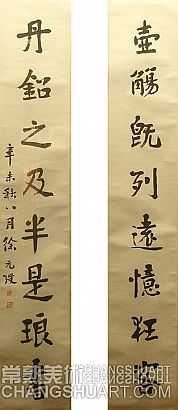 壺觴既列遠憶狂客
丹鉛之及半是琅
辛未秋八月徐元
常熟美术 CHANGSHU
CHANGSHUART.COM